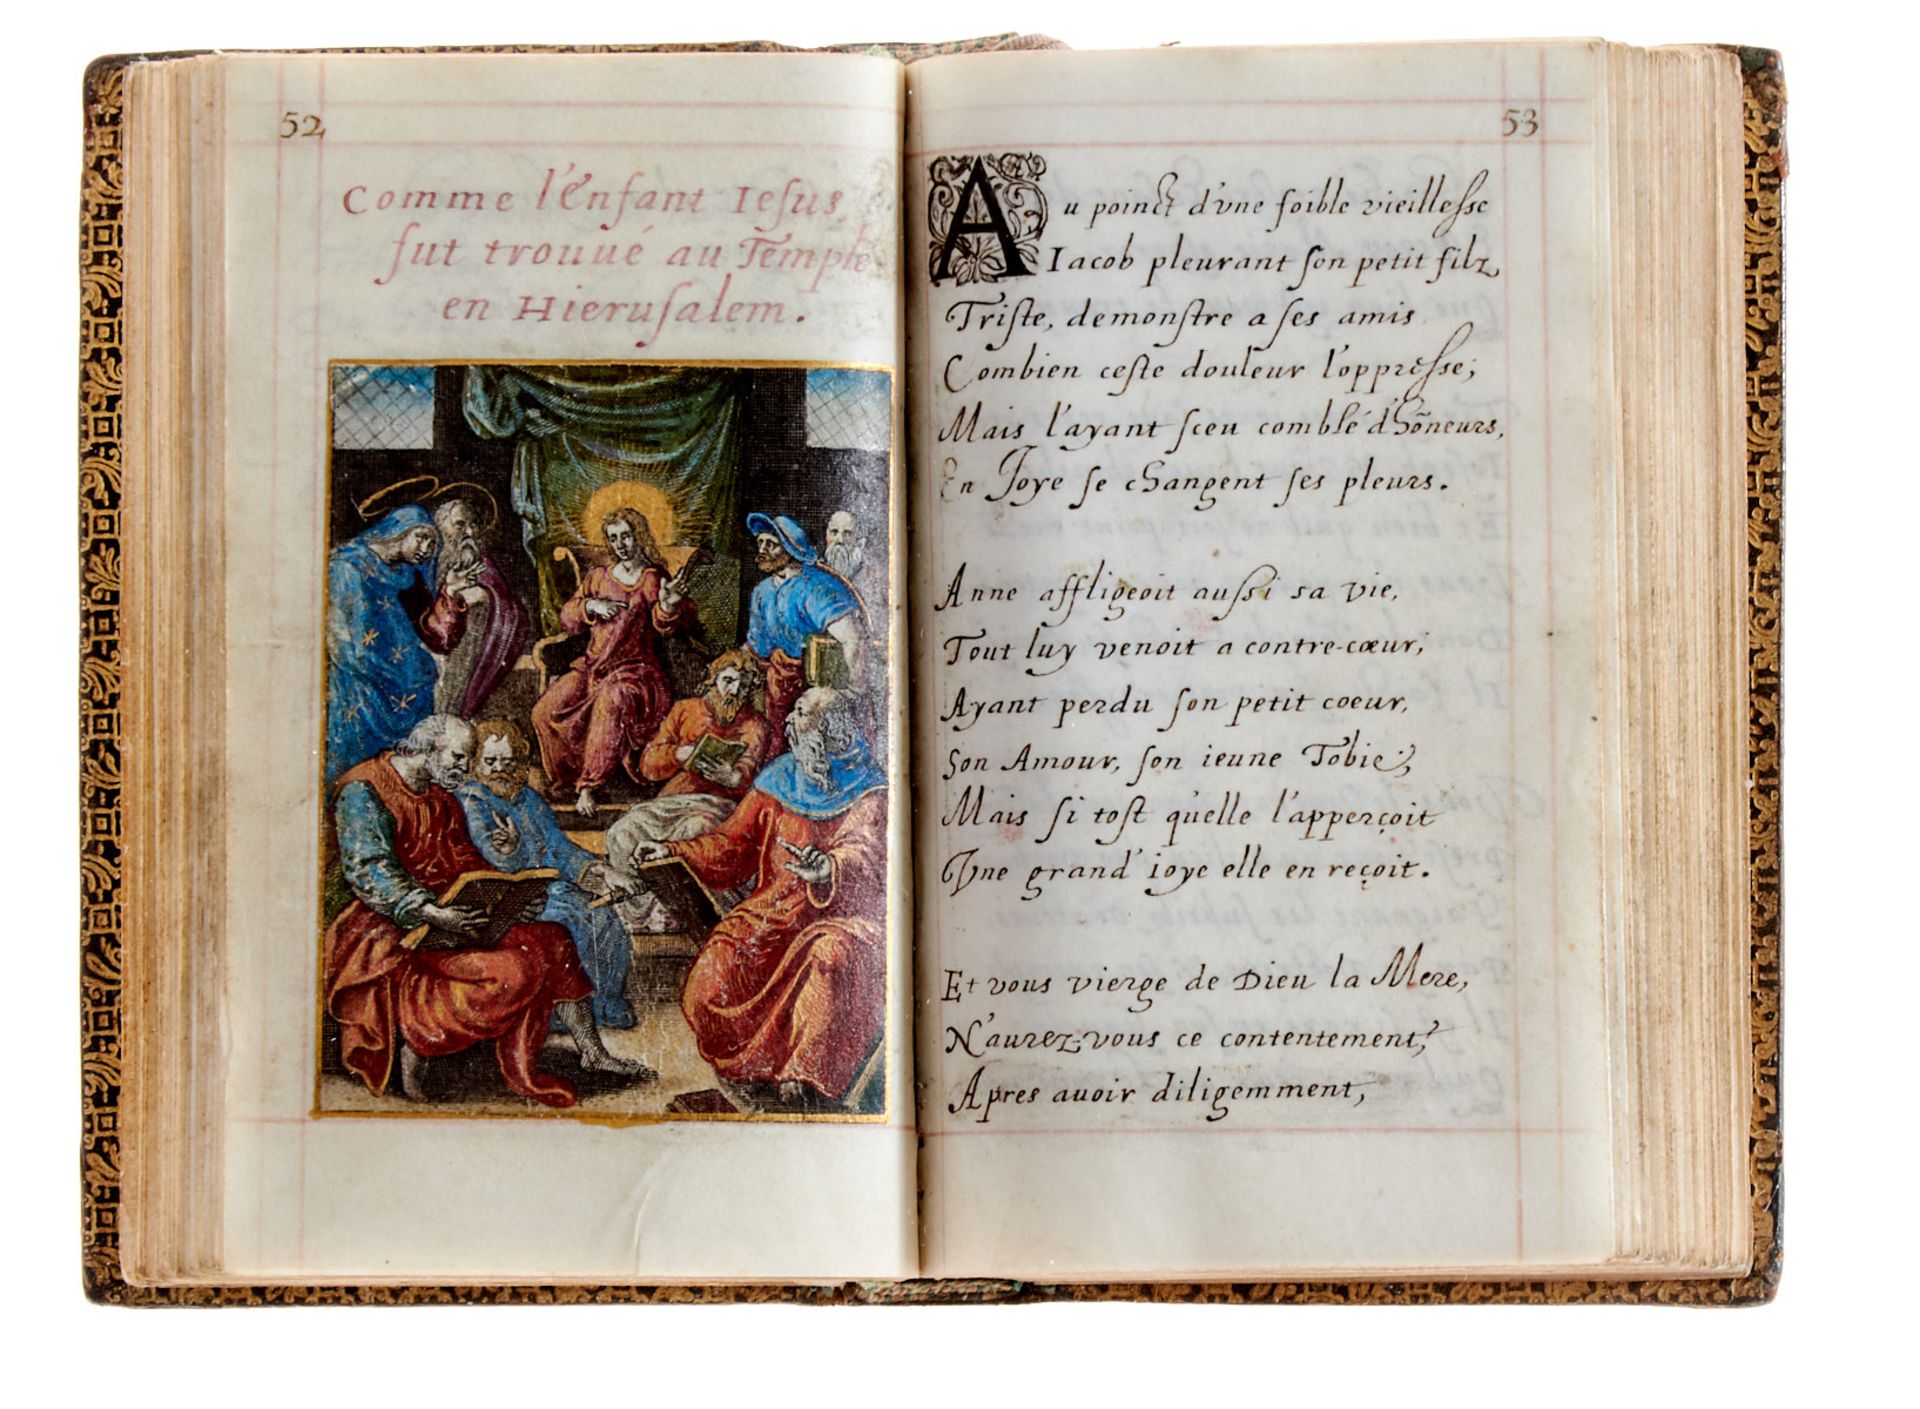 52
Comme l'Enfant Iesus
fut trouué au Temple
en Hierusalem.
53
Au poinct d'vne foible vieillesse
Iacob pleurant son petit filz
Triste, demonstre a ses amis
Combien ceste douleur l'oppresse;
Mais l'ayant sceu comblé d'hõneurs,
En Joye se changent ses pleurs.
Anne affligeoit aussi sa vie,
Tout luy venoit a contre-cœur;
Ayant perdu son petit coeur,
Son Amour, son ieune Tobie;
Mais si tost qu'elle l'apperçoit
Vne grand' ioye elle en reçoit.
Et vous vierge de Dieu la Mere,
N'aurez-vous ce contentement?
Apres auoir diligemment,